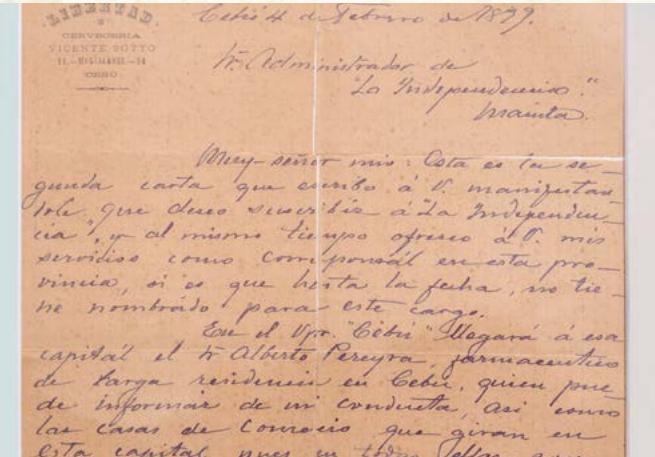 LIBERTAD
CERVECERIA
VICENTE SOTTO
CEBÚ
Cebú 4 de Febrero de 1899.
Sr. Administrador de
"La Independencia."
Manila.
Muy señor mio: Esta es la se-
gunda carta que escribo á V. manifestan-
dole, que deseo suscribir á "La Independen-
cia", y al mismo tiempo ofrezco á V. mis
servicios como corresponsál en esta pro-
vincia, si es que hasta la fecha, no tie-
ne nombrado para este cargo.
En el Vpr. "Cebú" llegará á esa
capitál el Sr. Alberto Pereyra, farmaceutico
de larga residencia en Cebú, quien pue-
de informar de mi conducta, asi como
las casas de comercio que giran en
esta capital, pues en todas ellas